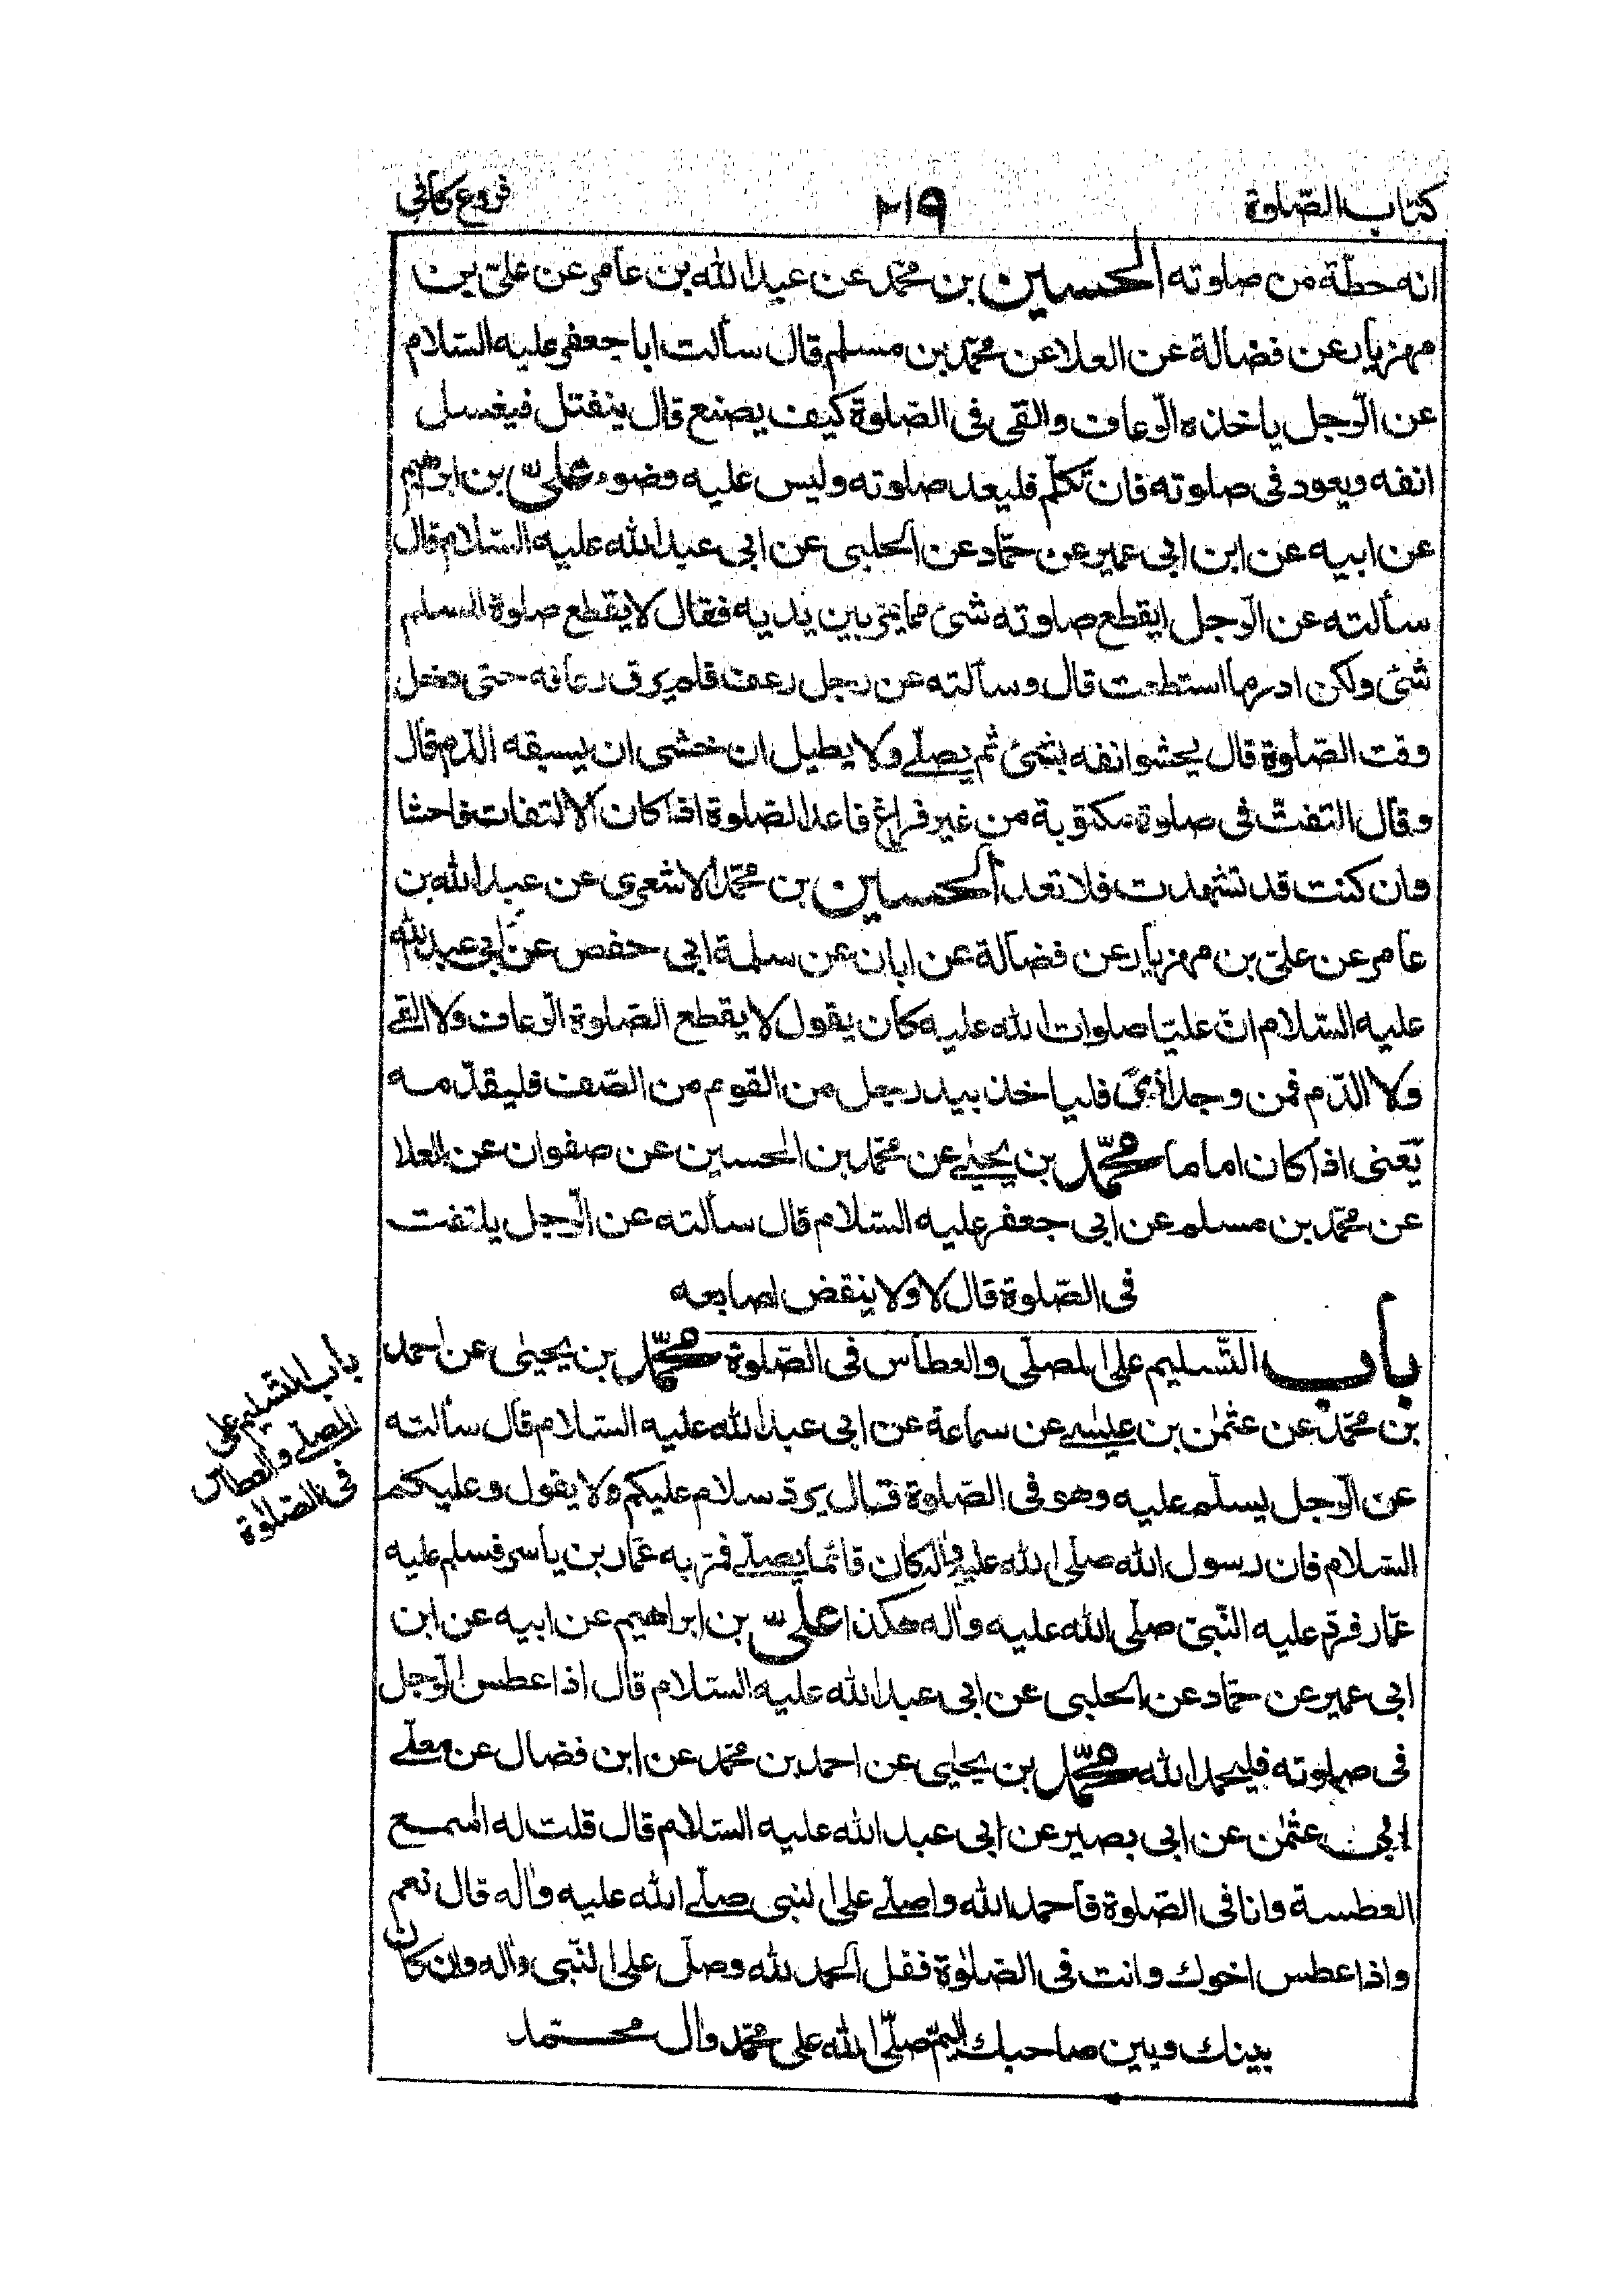 كتاب الصّلوة ٢١٩ فروع كافي
انه حطّة من صلوته الحسين بن محمّد عن عبد الله بن عامر عن علىّ بن
مهزيار عن فضالة عن العلا عن محمّد بن مسلم قال سألت ابا جعفر عليه السّلام
عن الرّجل ياخذه الرّعاف والقى فى الصّلوة كيف يصنع قال ينفتل فيغسل
انفه ويعود فى صلوته فان تكلّم فليعد صلوته وليس عليه وضوء علىّ بن ابرهيم
عن ابيه عن ابن ابى عمير عن حمّاد عن الحلبى عن ابى عبد الله عليه السّلام قال
سألته عن الرّجل ايقطع صلوته شئ ممّا يمرّ بين يديه فقال لا يقطع صلوة المسلم
شئ ولكن ادرء ما استطعت قال وسألته عن رجل رعف فلم يرق رعافه حتى دخل
وقت الصّلوة قال يحشو انفه بشئ ثم يصلّى ولا يطيل ان خشى ان يسبقه الدّم قال
وقال التفتّ فى صلوة مكتوبة من غير فراغ فاعد الصّلوة اذا كان الالتفات فاحشا
وان كنت قد تشهدت فلا تعد الحسين بن محمّد الاشعرى عن عبد الله بن
عامر عن علىّ بن مهزيار عن فضالة عن ابان عن سلمة ابى حفص عن ابى عبد الله
عليه السّلام انّ عليّا صلوات الله عليه كان يقول لا يقطع الصّلوة الرّعاف ولا القى
ولا الدّم فمن وجد اذى فلياخذ بيد رجل من القوم من الصّف فليقدّمه
يعنى اذا كان اماما محمّد بن يحيى عن محمّد بن الحسين عن صفوان عن العلا
عن محمّد بن مسلم عن ابى جعفر عليه السّلام قال سألته عن الرّجل يلتفت
فى الصّلوة قال لا ولا ينقض اصابعه
باب التّسليم على المصلّى والعطاس فى الصّلوة محمّد بن يحيى عن احمد
بن محمّد عن عثمن بن عيسى عن سماعة عن ابى عبد الله عليه السّلام قال سألته
عن الرّجل يسلّم عليه وهو فى الصّلوة قال يردّ سلام عليكم ولا يقول وعليكم
السّلام فان رسول الله صلّى الله عليه واله كان قائما يصلّى فمرّ به عمّار بن ياسر فسلم عليه
عمّار فردّ عليه النّبىّ صلّى الله عليه واله هكذا علىّ بن ابراهيم عن ابيه عن ابن
ابى عمير عن حمّاد عن الحلبى عن ابى عبد الله عليه السّلام قال اذا عطس الرّجل
فى صلوته فليحمد الله محمّد بن يحيى عن احمد بن محمّد عن ابن فضال عن معلّى
ابى عثمن عن ابى بصير عن ابى عبد الله عليه السّلام قال قلت له اسمع
العطسة وانا فى الصّلوة فاحمد الله واصلّى على النبى صلّى الله عليه واله قال نعم
واذا عطس اخوك وانت فى الصّلوة فقل الحمد لله وصلّ على النّبى واله وان كان
بينك وبين صاحبك اليمّ صلّى الله على محمّد وال محمّد
باب التّسليم على
المصلّى والعطاس
فى الصّلوة